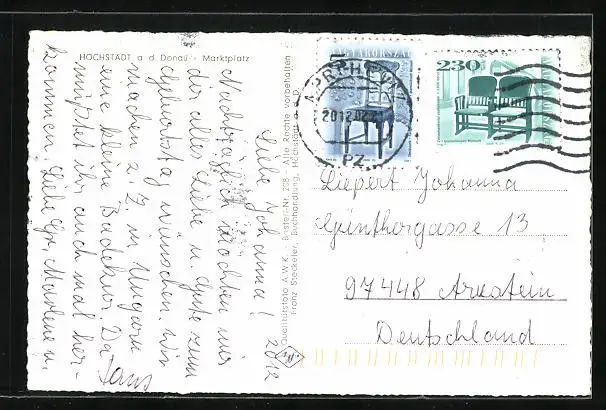 HÖCHSTADT a d Donau - Marktplatz
2012
Liebe Johanna!
Nachträglich möchten wir
dir alles Liebe u. Gute zum
Geburtstag wünschen. Wir
machen z. Z. in Ungarn
eine kleine Badekur. Da
müßtet ihr auch mal her-
kommen. Liebe Gr. Marlene u.
Hans
Qualitätsfoto A.W.K. Bestell-Nr. 208 - Alle Rechte vorbehalten
Franz Stecketer, Buchhandlung, Höchstadt a. D.
MAGYARORSZÁG
230
2012
PZ.
Liepert Johanna
Günthergasse 13
97448 Arnstein
Deutschland